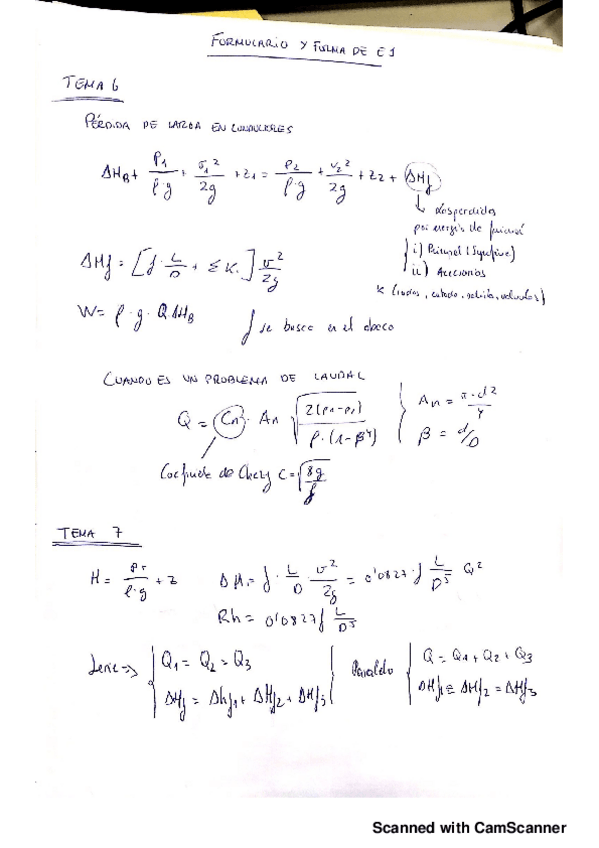 FORMULARIO Y FORMA DE EJ
TEMA 6
PÉRDIDA DE CARGA EN CONDUCTORES
ΔH_B + P₁/(ρ·g) + v₁²/2g + z₁ = P₂/(ρ·g) + v₂²/2g + z₂ + ΔHf
↳ desperdidas
por energía de
i) Principal (
ii) Accesorios
K (codos, entrada, salida, valvulas)
ΔHf = [f · L/D + ΣK.] v²/2g
W = ρ · g · Q ΔH_B
f se busca en el abaco
CUANDO ES UN PROBLEMA DE CAUDAL
Q = Cn · An √(2(p₁-p₂)/(ρ·(1-β⁴))) { An = π·d²/4
β = d/D
Coeficiente de Chezy C = √(8g/f)
TEMA 7
H = P/(ρ·g) + z ΔH = f · L/D · v²/2g = 0'0827 · f L/D⁵ Q²
Rh = 0'0827 f L/D⁵
Serie => { Q₁ = Q₂ = Q₃
ΔHf = Δhf₁ + ΔHf₂ + ΔHf₃
Paralelo { Q = Q₁ + Q₂ + Q₃
ΔHf₁ = ΔHf₂ = ΔHf₃
Scanned with CamScanner